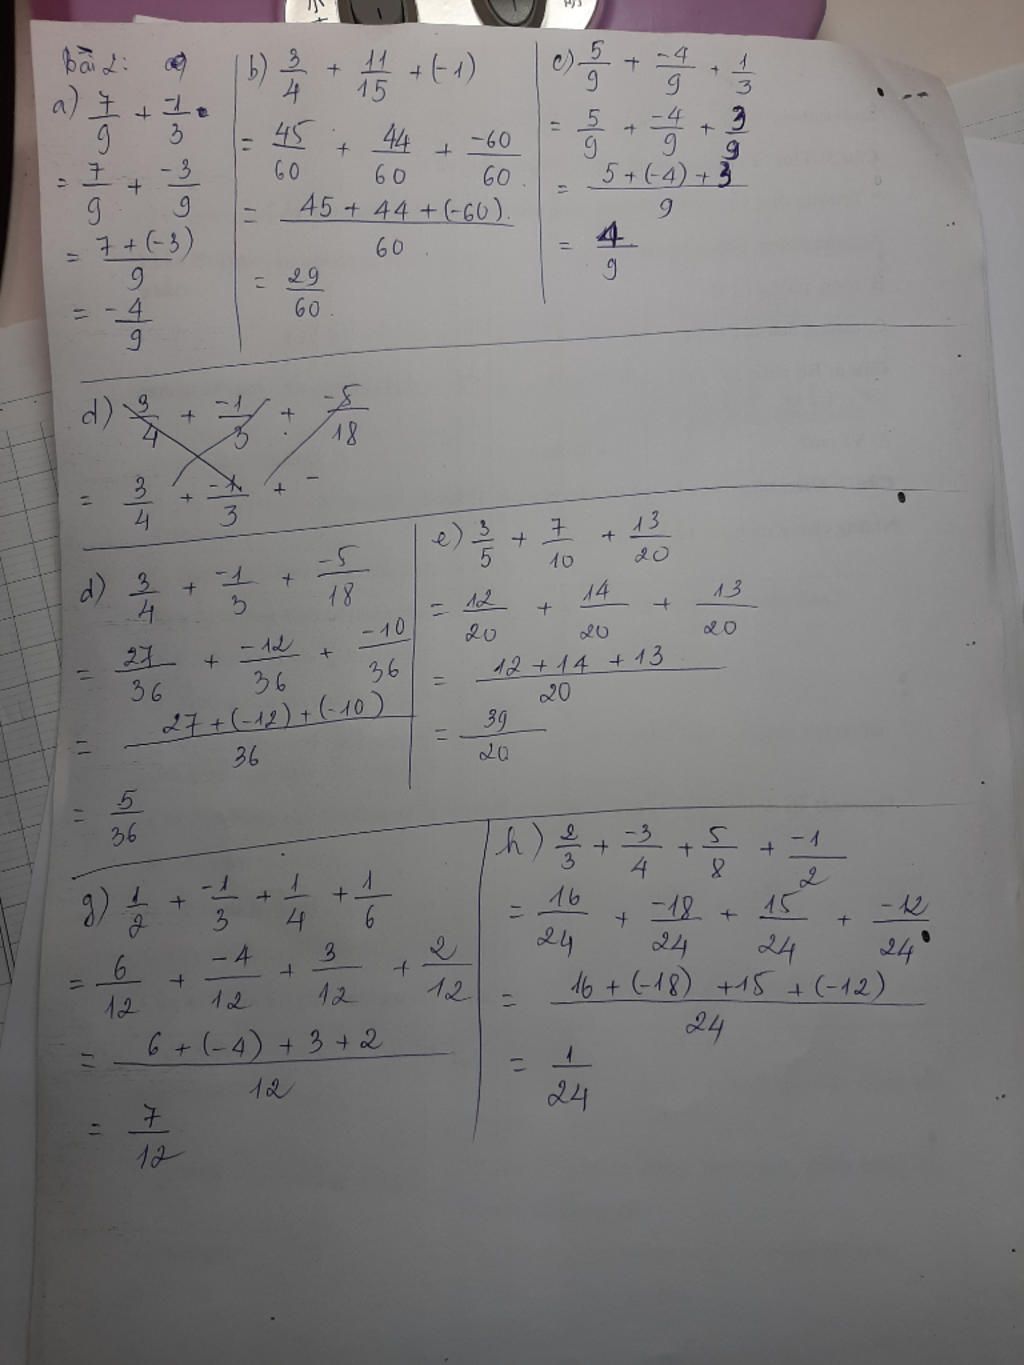 Bài 2:
a) 7/9 + -1/3
= 7/9 + -3/9
= 7 + (-3) / 9
= -4/9
b) 3/4 + 11/15 + (-1)
= 45/60 + 44/60 + -60/60
= 45 + 44 + (-60) / 60
= 29/60
c) 5/9 + -4/9 + 1/3
= 5/9 + -4/9 + 3/9
= 5 + (-4) + 3 / 9
= 4/9
d) 3/4 + -1/3 + -5/18
= 3/4 + -1/3 + -
d) 3/4 + -1/3 + -5/18
= 27/36 + -12/36 + -10/36
= 27 + (-12) + (-10) / 36
= 5/36
e) 3/5 + 7/10 + 13/20
= 12/20 + 14/20 + 13/20
= 12 + 14 + 13 / 20
= 39/20
g) 1/2 + -1/3 + 1/4 + 1/6
= 6/12 + -4/12 + 3/12 + 2/12
= 6 + (-4) + 3 + 2 / 12
= 7/12
h) 2/3 + -3/4 + 5/8 + -1/2
= 16/24 + -18/24 + 15/24 + -12/24
= 16 + (-18) + 15 + (-12) / 24
= 1/24